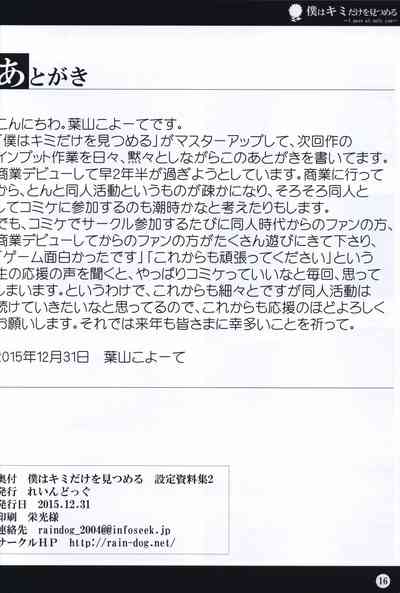 僕はキミだけを見つめる
～I gaze at only you～
あとがき
こんにちわ。葉山こよーてです。
「僕はキミだけを見つめる」がマスターアップして、次回作の
インプット作業を日々、黙々としながらこのあとがきを書いてます。
商業デビューして早2年半が過ぎようとしています。商業に行って
から、とんと同人活動というものが疎かになり、そろそろ同人と
してコミケに参加するのも潮時かなと考えたりもします。
でも、コミケでサークル参加するたびに同人時代からのファンの方、
商業デビューしてからのファンの方がたくさん遊びにきて下さり、
「ゲーム面白かったです」「これからも頑張ってください」という
生の応援の声を聞くと、やっぱりコミケっていいなと毎回、思って
しまいます。というわけで、これからも細々とですが同人活動は
続けていきたいなと思ってるので、これからも応援のほどよろしく
お願いします。それでは来年も皆さまに幸多いことを祈って。
2015年12月31日　葉山こよーて
奥付　僕はキミだけを見つめる　設定資料集2
発行　れいんどっぐ
発行日　2015.12.31
印刷　栄光様
連絡先　raindog_2004@infoseek.jp
サークルＨＰ　http://rain-dog.net/
16